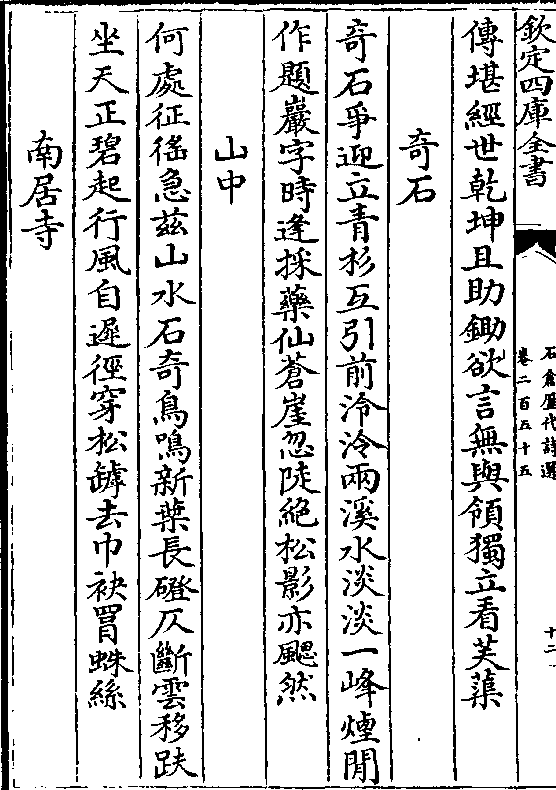 欽定四庫全書
石倉歷代詩選
卷二百五十五
十二
傳堪經世乾坤且助鋤欲言無與領獨立看芙蕖
奇石
奇石爭迎立青杉互引前泠泠兩溪水淡淡一峰煙閒
作題巖字時逢採藥仙蒼崖忽陡絶松影亦颸然
山中
何處征徭急茲山水石奇鳥鳴新葉長磴仄斷雲移趺
坐天正碧起行風自遲徑穿松罅去巾袂罥蛛絲
南居寺